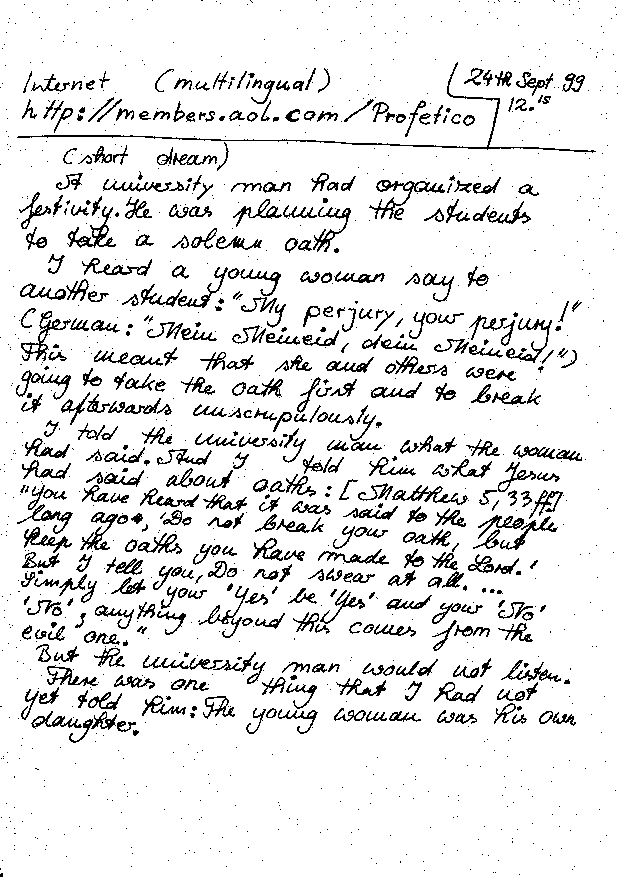 Internet (multilingual)
24th Sept 99
http://members.aol.com/Profetico
12.15
(short dream)
A university man had organized a
festivity. He was planning the students
to take a solemn oath.
I heard a young woman say to
another student: "My perjury, your perjury!"
(German: "Mein Meineid, dein Meineid!")
This meant that she and others were
going to take the oath first and to break
it afterwards unscrupulously.
I told the university man what the woman
had said. And I told him what Jesus
had said about oaths: [Matthew 5,33ff]
"You have heard that it was said to the people
long ago, 'Do not break your oath, but
keep the oaths you have made to the Lord.'
But I tell you, Do not swear at all. ...
Simply let your 'Yes' be 'Yes' and your 'No'
'No'; anything beyond this comes from the
evil one."
But the university man would not listen.
There was one thing that I had not
yet told him: The young woman was his own
daughter.